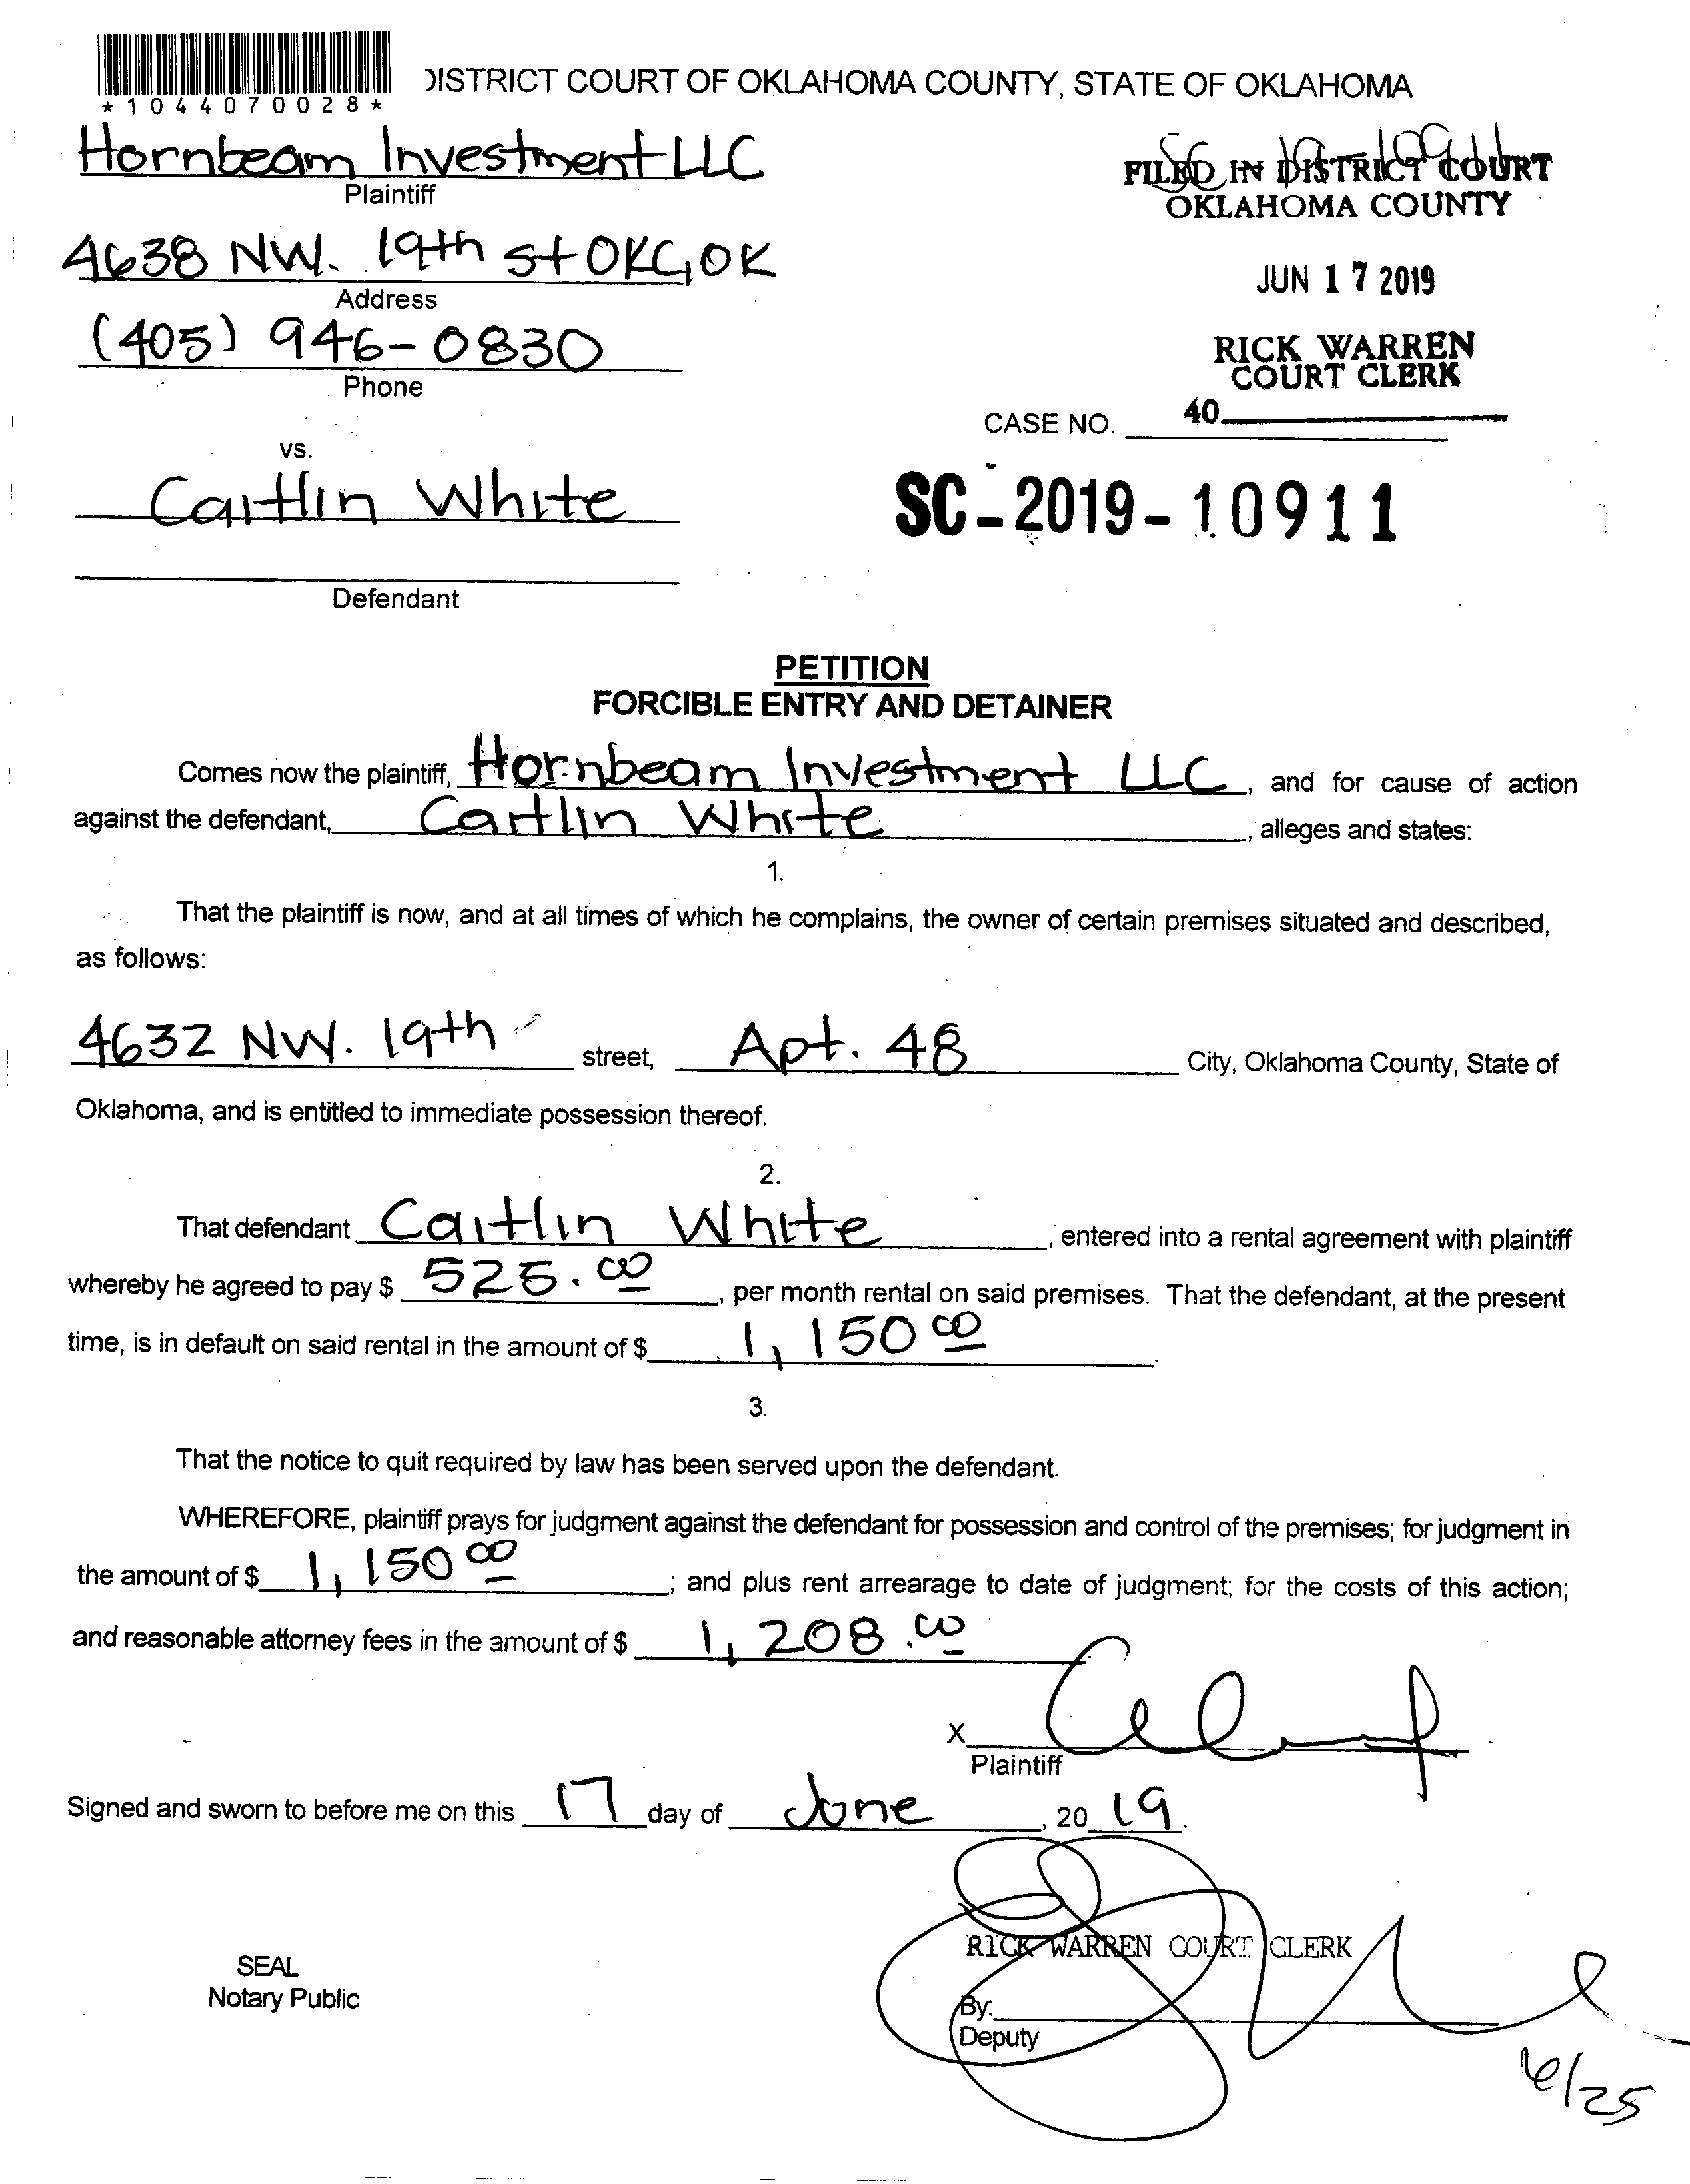 *1044070028*
DISTRICT COURT OF OKLAHOMA COUNTY, STATE OF OKLAHOMA
Hornbeam Investment LLC
Plaintiff
FILED IN DISTRICT COURT
OKLAHOMA COUNTY
4638 NW. 19th St OKC, OK
Address
JUN 17 2019
(405) 946-0830
Phone
RICK WARREN
COURT CLERK
40
CASE NO.
vs.
Caitlin White
SC-2019-10911
Defendant
PETITION
FORCIBLE ENTRY AND DETAINER
Comes now the plaintiff, Hornbeam Investment LLC, and for cause of action
against the defendant, Caitlin White, alleges and states:
1.
That the plaintiff is now, and at all times of which he complains, the owner of certain premises situated and described,
as follows:
4632 NW. 19th street, Apt. 48 City, Oklahoma County, State of
Oklahoma, and is entitled to immediate possession thereof.
2.
That defendant Caitlin White, entered into a rental agreement with plaintiff
whereby he agreed to pay $ 525.00, per month rental on said premises. That the defendant, at the present
time, is in default on said rental in the amount of $ 1,150 00
3.
That the notice to quit required by law has been served upon the defendant.
WHEREFORE, plaintiff prays for judgment against the defendant for possession and control of the premises; for judgment in
the amount of $ 1,150 00; and plus rent arrearage to date of judgment; for the costs of this action;
and reasonable attorney fees in the amount of $ 1,208.00
X
Plaintiff
Signed and sworn to before me on this 17 day of June, 20 19.
RICK WARREN COURT CLERK
SEAL
Notary Public
By:
Deputy
6/25